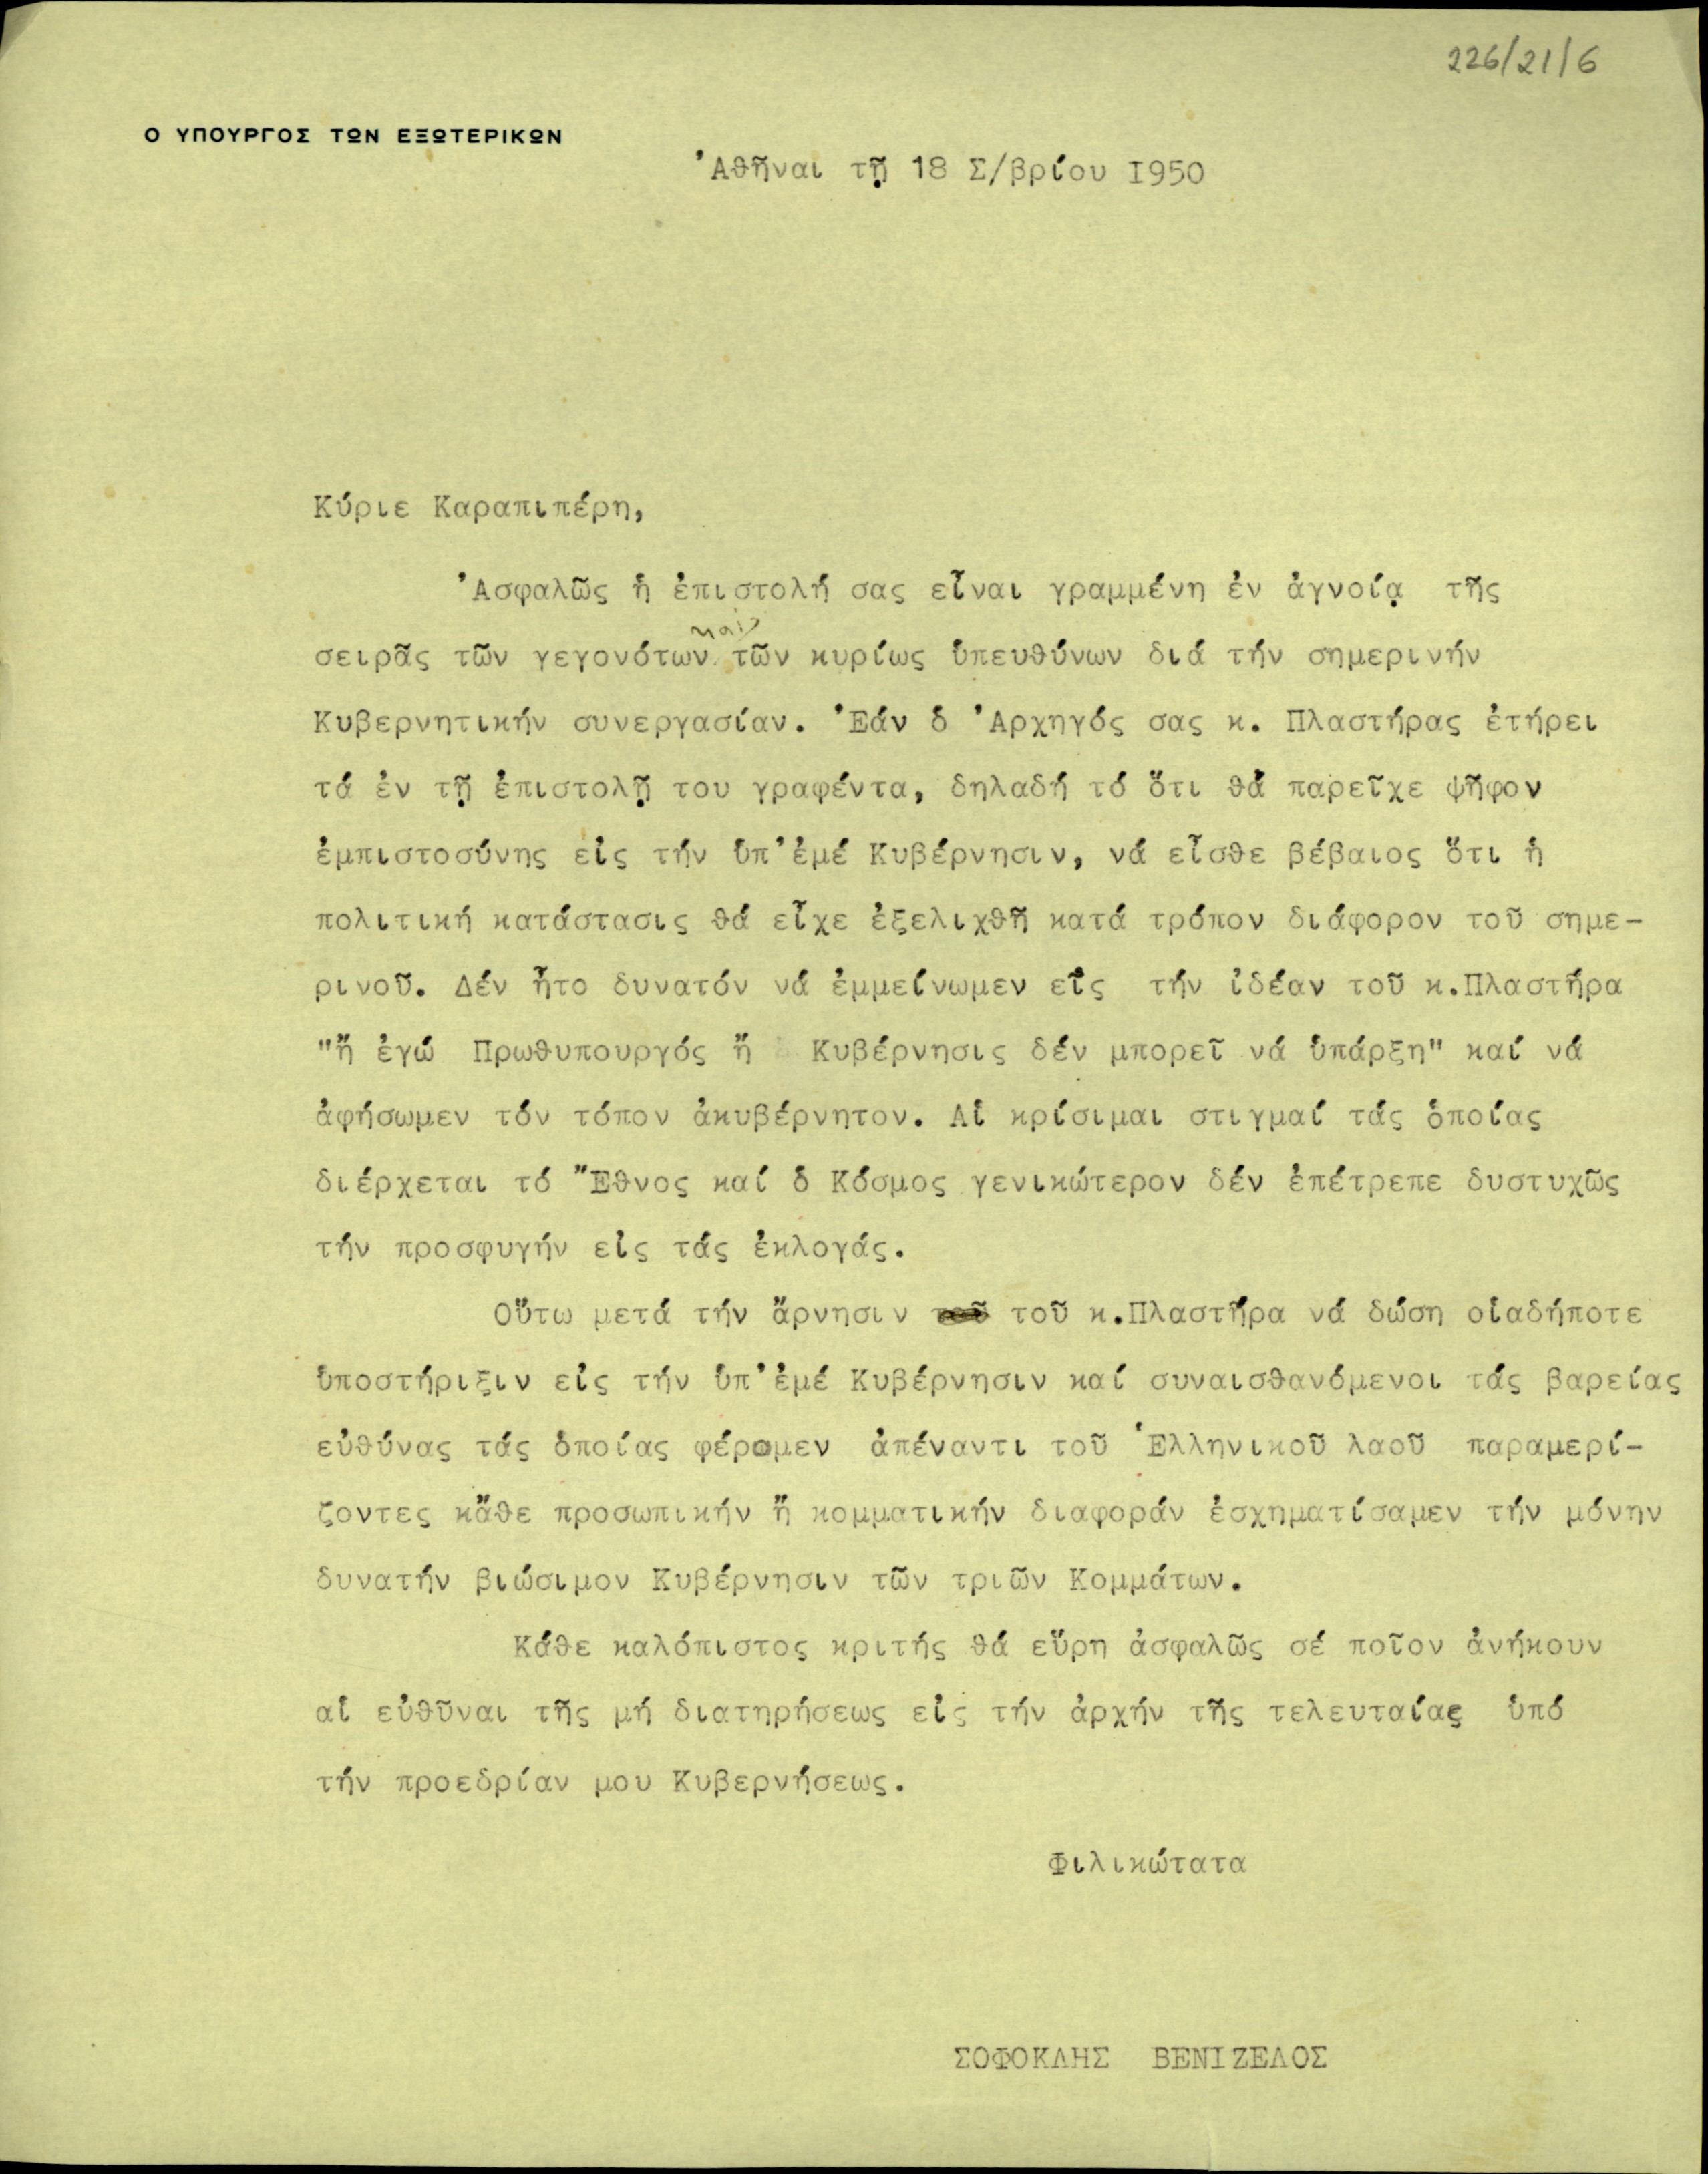 226/21/6
Ο ΥΠΟΥΡΓΟΣ ΤΩΝ ΕΞΩΤΕΡΙΚΩΝ
Ἀθῆναι τῇ 18 Σ/βρίου I950
Κύριε Καραπιπέρη,
Ἀσφαλῶς ἡ ἐπιστολή σας εἶναι γραμμένη ἐν ἀγνοίᾳ τῆς
καί
σειρᾶς τῶν γεγονότων τῶν κυρίως ὑπευθύνων διά τήν σημερινήν
Κυβερνητικήν συνεργασίαν. Ἐάν ὁ Ἀρχηγός σας κ. Πλαστήρας ἐτήρει
τά ἐν τῇ ἐπιστολῇ του γραφέντα, δηλαδή τό ὅτι θά παρεῖχε ψῆφον
ἐμπιστοσύνης εἰς τήν ὑπ'ἐμέ Κυβέρνησιν, νά εἶσθε βέβαιος ὅτι ἡ
πολιτική κατάστασις θά εἶχε ἐξελιχθῆ κατά τρόπον διάφορον τοῦ σημε-
ρινοῦ. Δέν ἦτο δυνατόν νά ἐμμείνωμεν εἰς τήν ἰδέαν τοῦ κ.Πλαστήρα
"ἤ ἐγώ Πρωθυπουργός ἤ Κυβέρνησις δέν μπορεῖ νά ὑπάρξη" καί νά
ἀφήσωμεν τόν τόπον ἀκυβέρνητον. Αἱ κρίσιμαι στιγμαί τάς ὁποίας
διέρχεται τό Ἔθνος καί ὁ Κόσμος γενικώτερον δέν ἐπέτρεπε δυστυχῶς
τήν προσφυγήν εἰς τάς ἐκλογάς.
Οὕτω μετά τήν ἄρνησιν τοῦ κ.Πλαστήρα νά δώση οἱαδήποτε
ὑποστήριξιν εἰς τήν ὑπ'ἐμέ Κυβέρνησιν καί συναισθανόμενοι τάς βαρείας
εὐθύνας τάς ὁποίας φέρομεν ἀπέναντι τοῦ Ἑλληνικοῦ λαοῦ παραμερί-
ζοντες κἄθε προσωπικήν ἤ κομματικήν διαφοράν ἐσχηματίσαμεν τήν μόνην
δυνατήν βιώσιμον Κυβέρνησιν τῶν τριῶν Κομμάτων.
Κάθε καλόπιστος κριτής θά εὕρη ἀσφαλῶς σέ ποῖον ἀνήκουν
αἱ εὐθῦναι τῆς μή διατηρήσεως εἰς τήν ἀρχήν τῆς τελευταίας ὑπό
τήν προεδρίαν μου Κυβερνήσεως.
Φιλικώτατα
ΣΟΦΟΚΛΗΣ ΒΕΝΙΖΕΛΟΣ